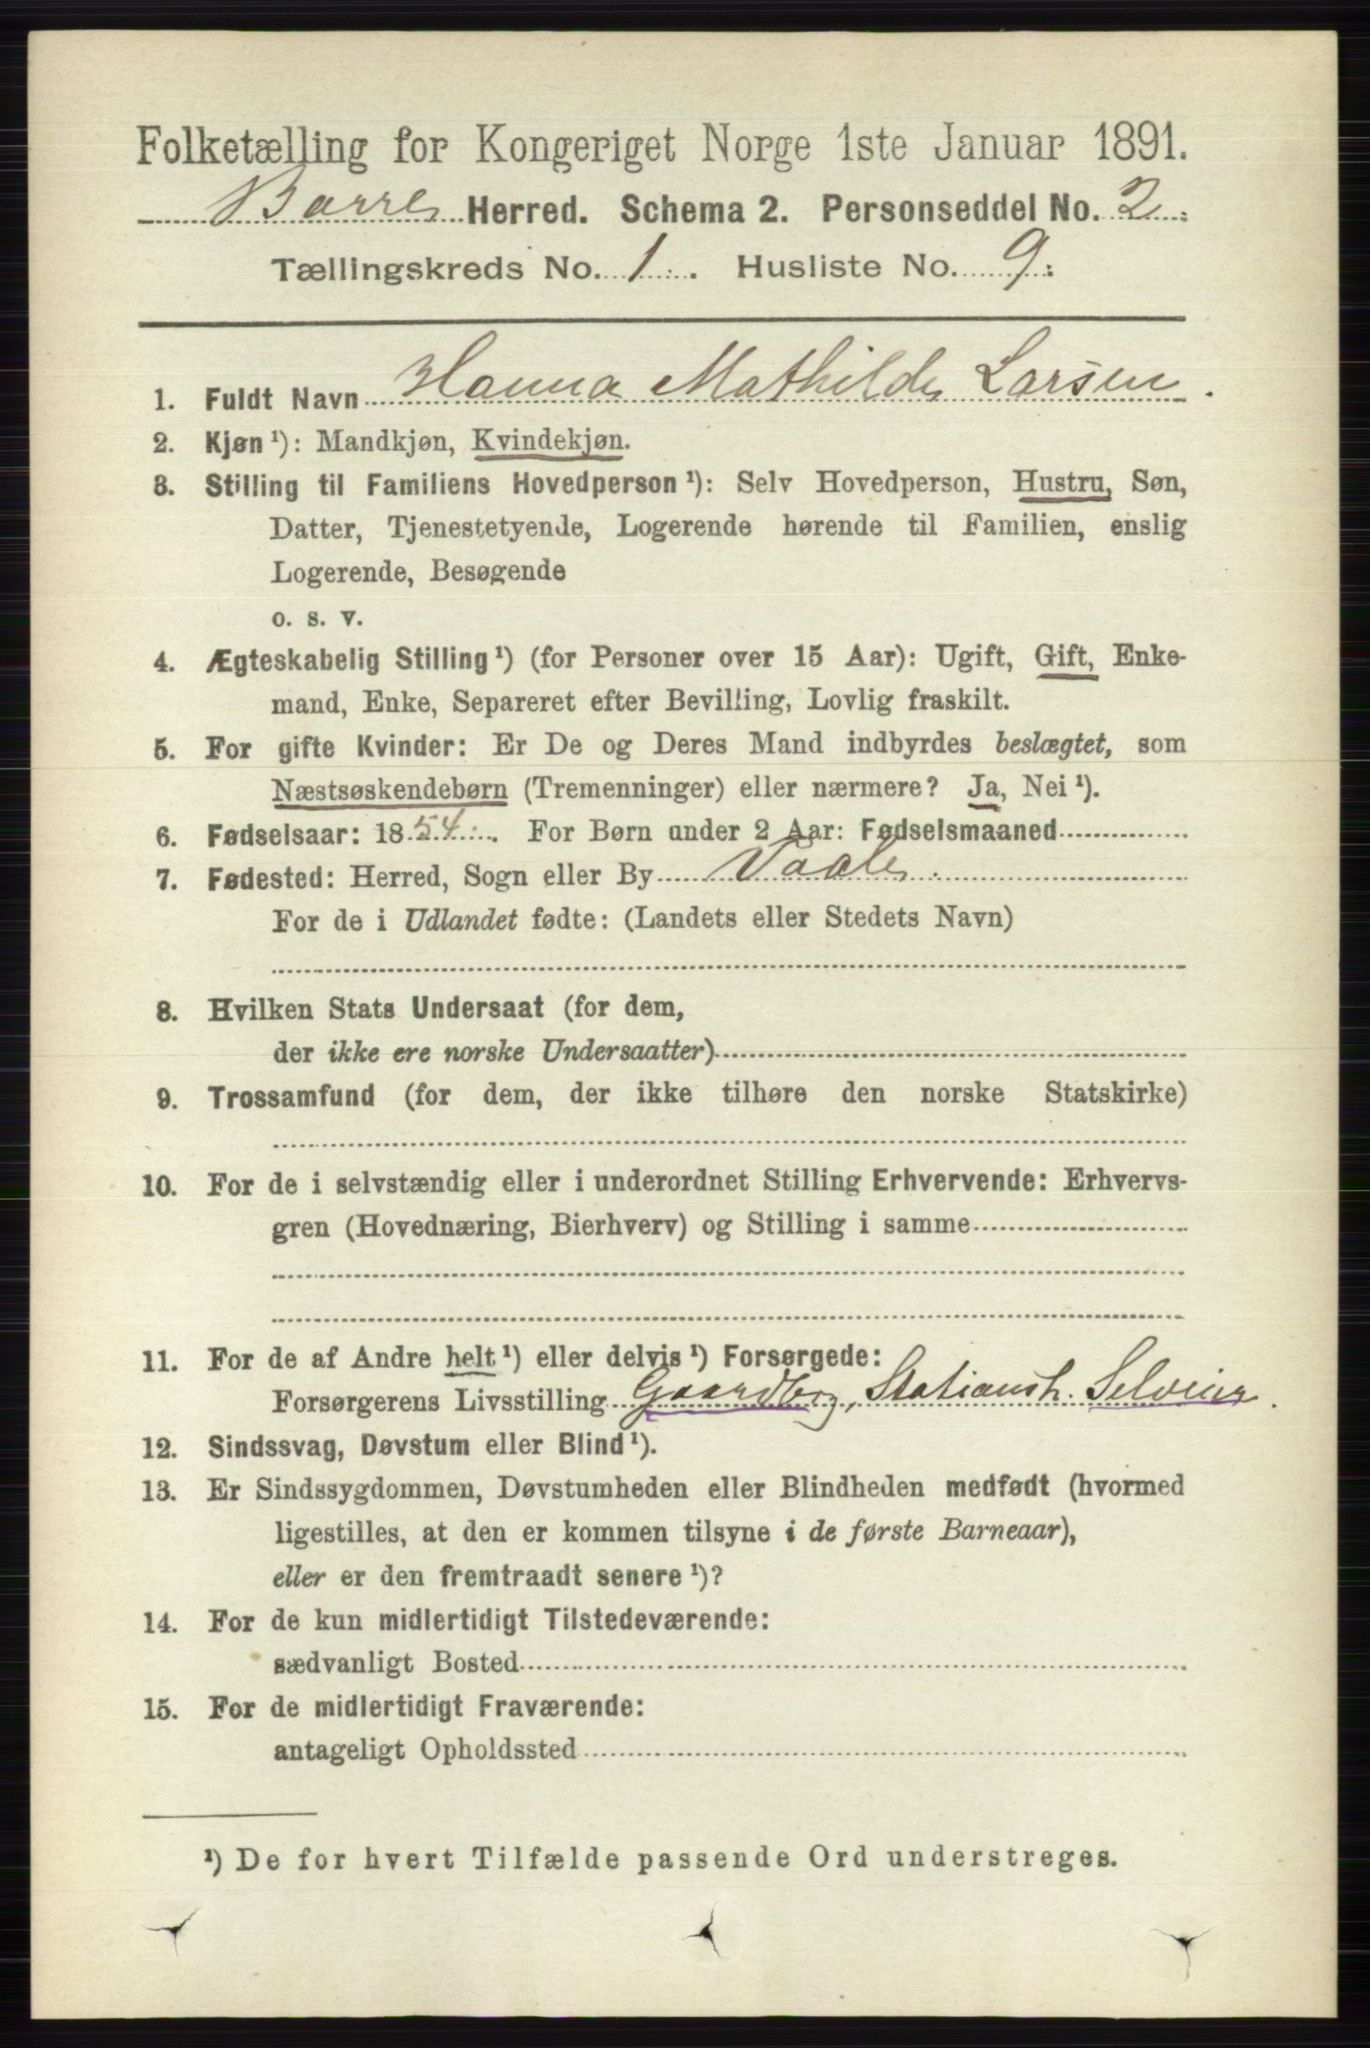 Folketælling for Kongeriget Norge 1ste Januar 1891.
Borre Herred. Schema 2. Personseddel No. 2.
Tællingskreds No. 1. Husliste No. 9.
1. Fuldt Navn Hanna Mathilde Larsen.
2. Kjøn ¹): Mandkjøn, Kvindekjøn.
3. Stilling til Familiens Hovedperson ¹): Selv Hovedperson, Hustru, Søn,
Datter, Tjenestetyende, Logerende hørende til Familien, enslig
Logerende, Besøgende
o. s. v.
4. Ægteskabelig Stilling ¹) (for Personer over 15 Aar): Ugift, Gift, Enke-
mand, Enke, Separeret efter Bevilling, Lovlig fraskilt.
5. For gifte Kvinder: Er De og Deres Mand indbyrdes beslægtet, som
Næstsøskendebørn (Tremenninger) eller nærmere? Ja, Nei ¹).
6. Fødselsaar: 1854. For Børn under 2 Aar: Fødselsmaaned
7. Fødested: Herred, Sogn eller By Vaale.
For de i Udlandet fødte: (Landets eller Stedets Navn)
8. Hvilken Stats Undersaat (for dem,
der ikke ere norske Undersaatter)
9. Trossamfund (for dem, der ikke tilhøre den norske Statskirke)
10. For de i selvstændig eller i underordnet Stilling Erhvervende: Erhvervs-
gren (Hovednæring, Bierhverv) og Stilling i samme
11. For de af Andre helt ¹) eller delvis ¹) Forsørgede:
Forsørgerens Livsstilling Gaardbrg, Stationsh. Selveier.
12. Sindssvag, Døvstum eller Blind ¹).
13. Er Sindssygdommen, Døvstumheden eller Blindheden medfødt (hvormed
ligestilles, at den er kommen tilsyne i de første Barneaar),
eller er den fremtraadt senere ¹)?
14. For de kun midlertidigt Tilstedeværende:
sædvanligt Bosted
15. For de midlertidigt Fraværende:
antageligt Opholdssted
¹) De for hvert Tilfælde passende Ord understreges.